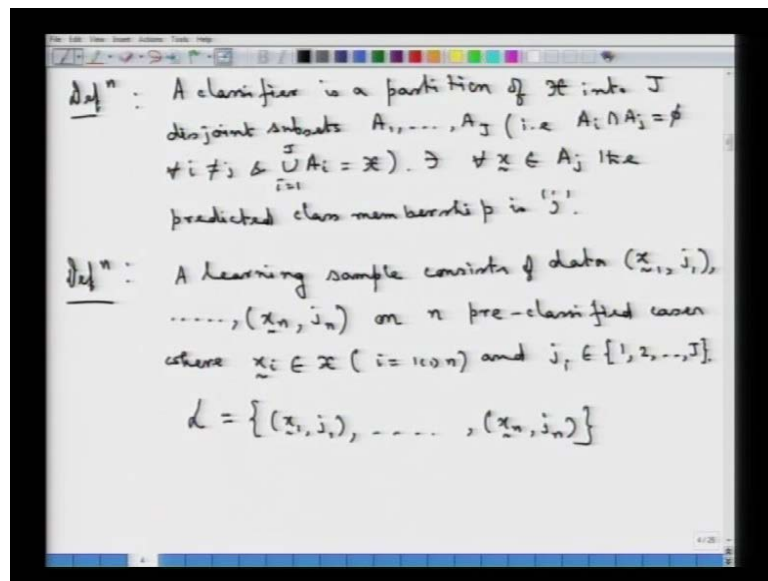 File Edit View Insert Actions Tools Help
Defⁿ : A classifier is a partition of 𝒳 into J
disjoint subsets A₁, ..., A_J (i.e A_i ∩ A_j = φ
∀ i ≠ j & ⋃_{i=1}^{J} A_i = 𝒳). ∋ ∀ x̰ ∈ A_j the
predicted class membership is 'j'.
Defⁿ : A learning sample consists of data (x̰₁, j₁),
....., (x̰ₙ, jₙ) on n pre-classified cases
where x̰ᵢ ∈ 𝒳 ( i = 1(1)n) and jᵢ ∈ {1, 2, .., J}.
ℒ = {(x̰₁, j₁), ..... , (x̰ₙ, jₙ)}